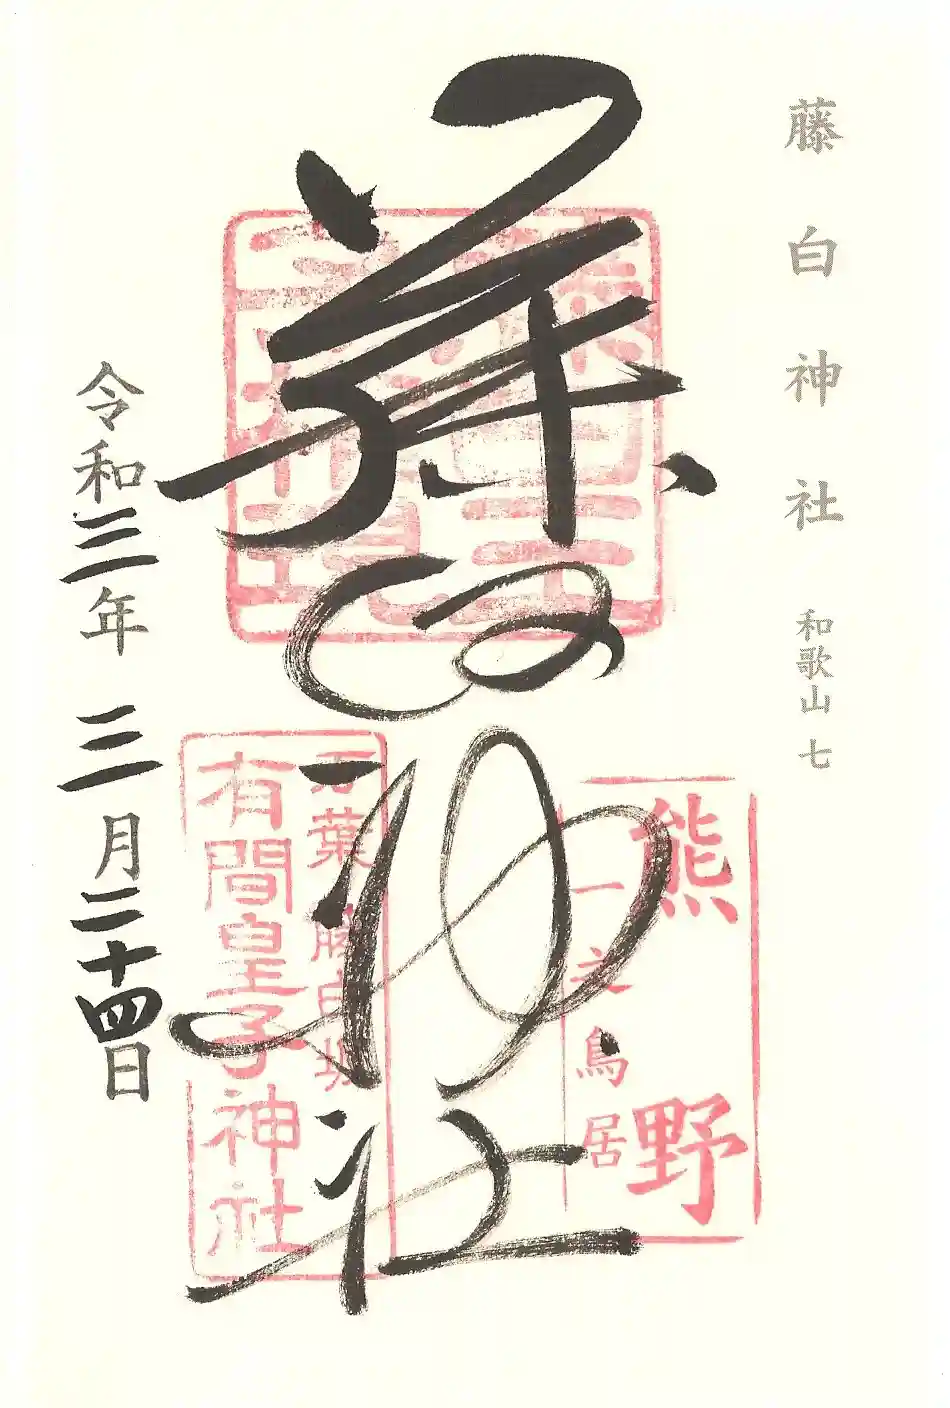 藤白神社 和歌山 七
藤白神社
藤白王子神社現
熊野
一之鳥居
万葉 藤白坂
有間皇子神社
令和三年 三月二十四日